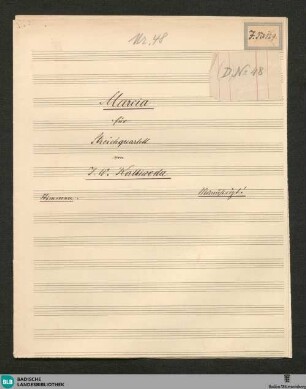 Nr. 48
D. Nr. 48
Marcia
für
Streichquartett
von
J. W. Kalliwoda
Stimmen.
Manuskript.
BLB
BADISCHE
LANDESBIBLIOTHEK